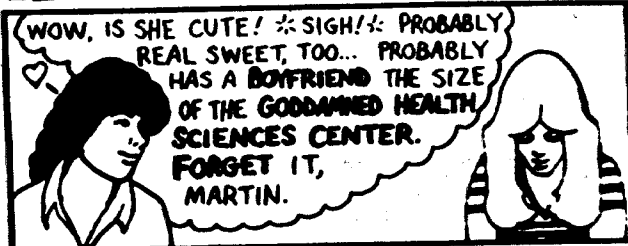 WOW, IS SHE CUTE! *SIGH!* PROBABLY
REAL SWEET, TOO... PROBABLY
HAS A BOYFRIEND THE SIZE
OF THE GODDAMNED HEALTH
SCIENCES CENTER.
FORGET IT,
MARTIN.